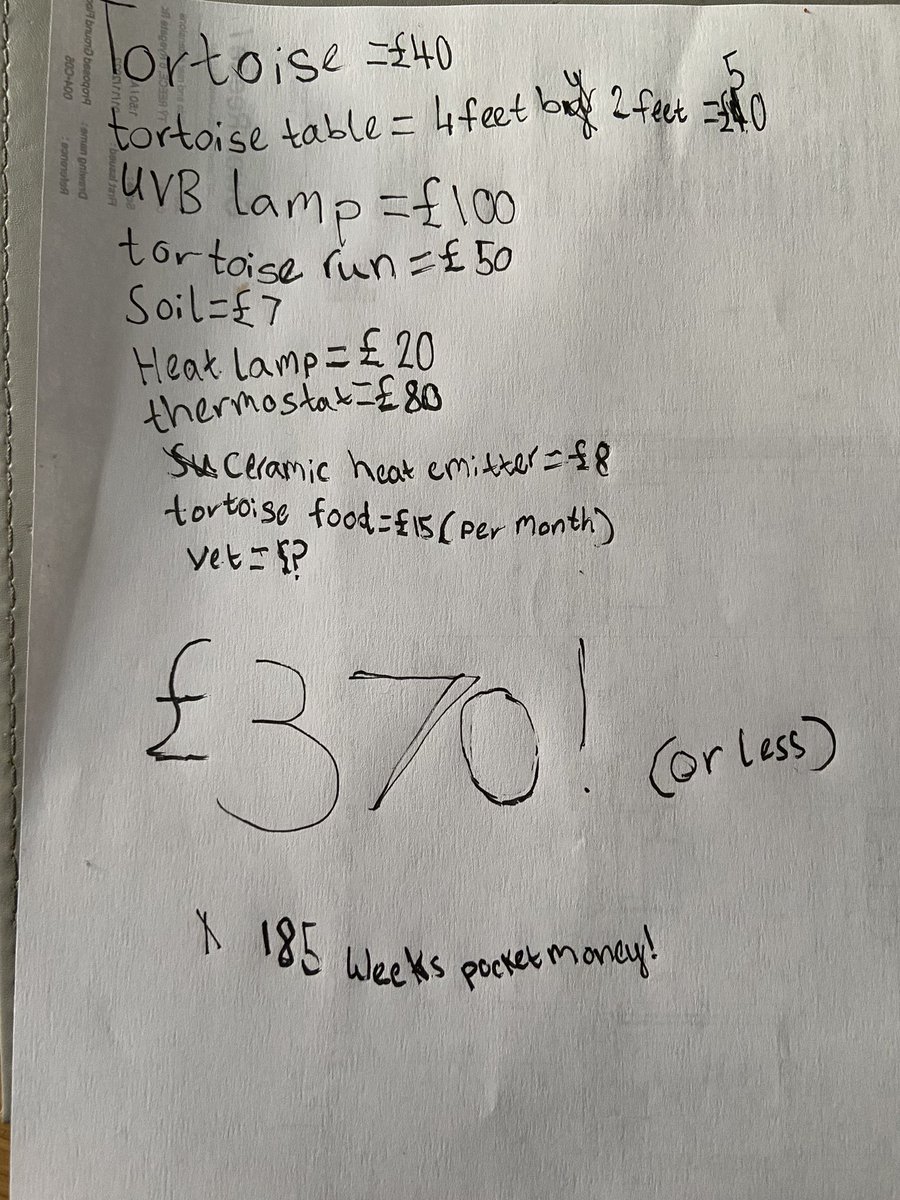 Tortoise =£40
tortoise table = 4 feet by 2 feet =£50
UVB lamp =£100
tortoise run =£50
Soil=£7
Heat lamp=£20
thermostat=£80
Ceramic heat emitter=£8
tortoise food=£15 (per month)
vet=£?
£370! (or less)
X 185 Weeks pocket money!